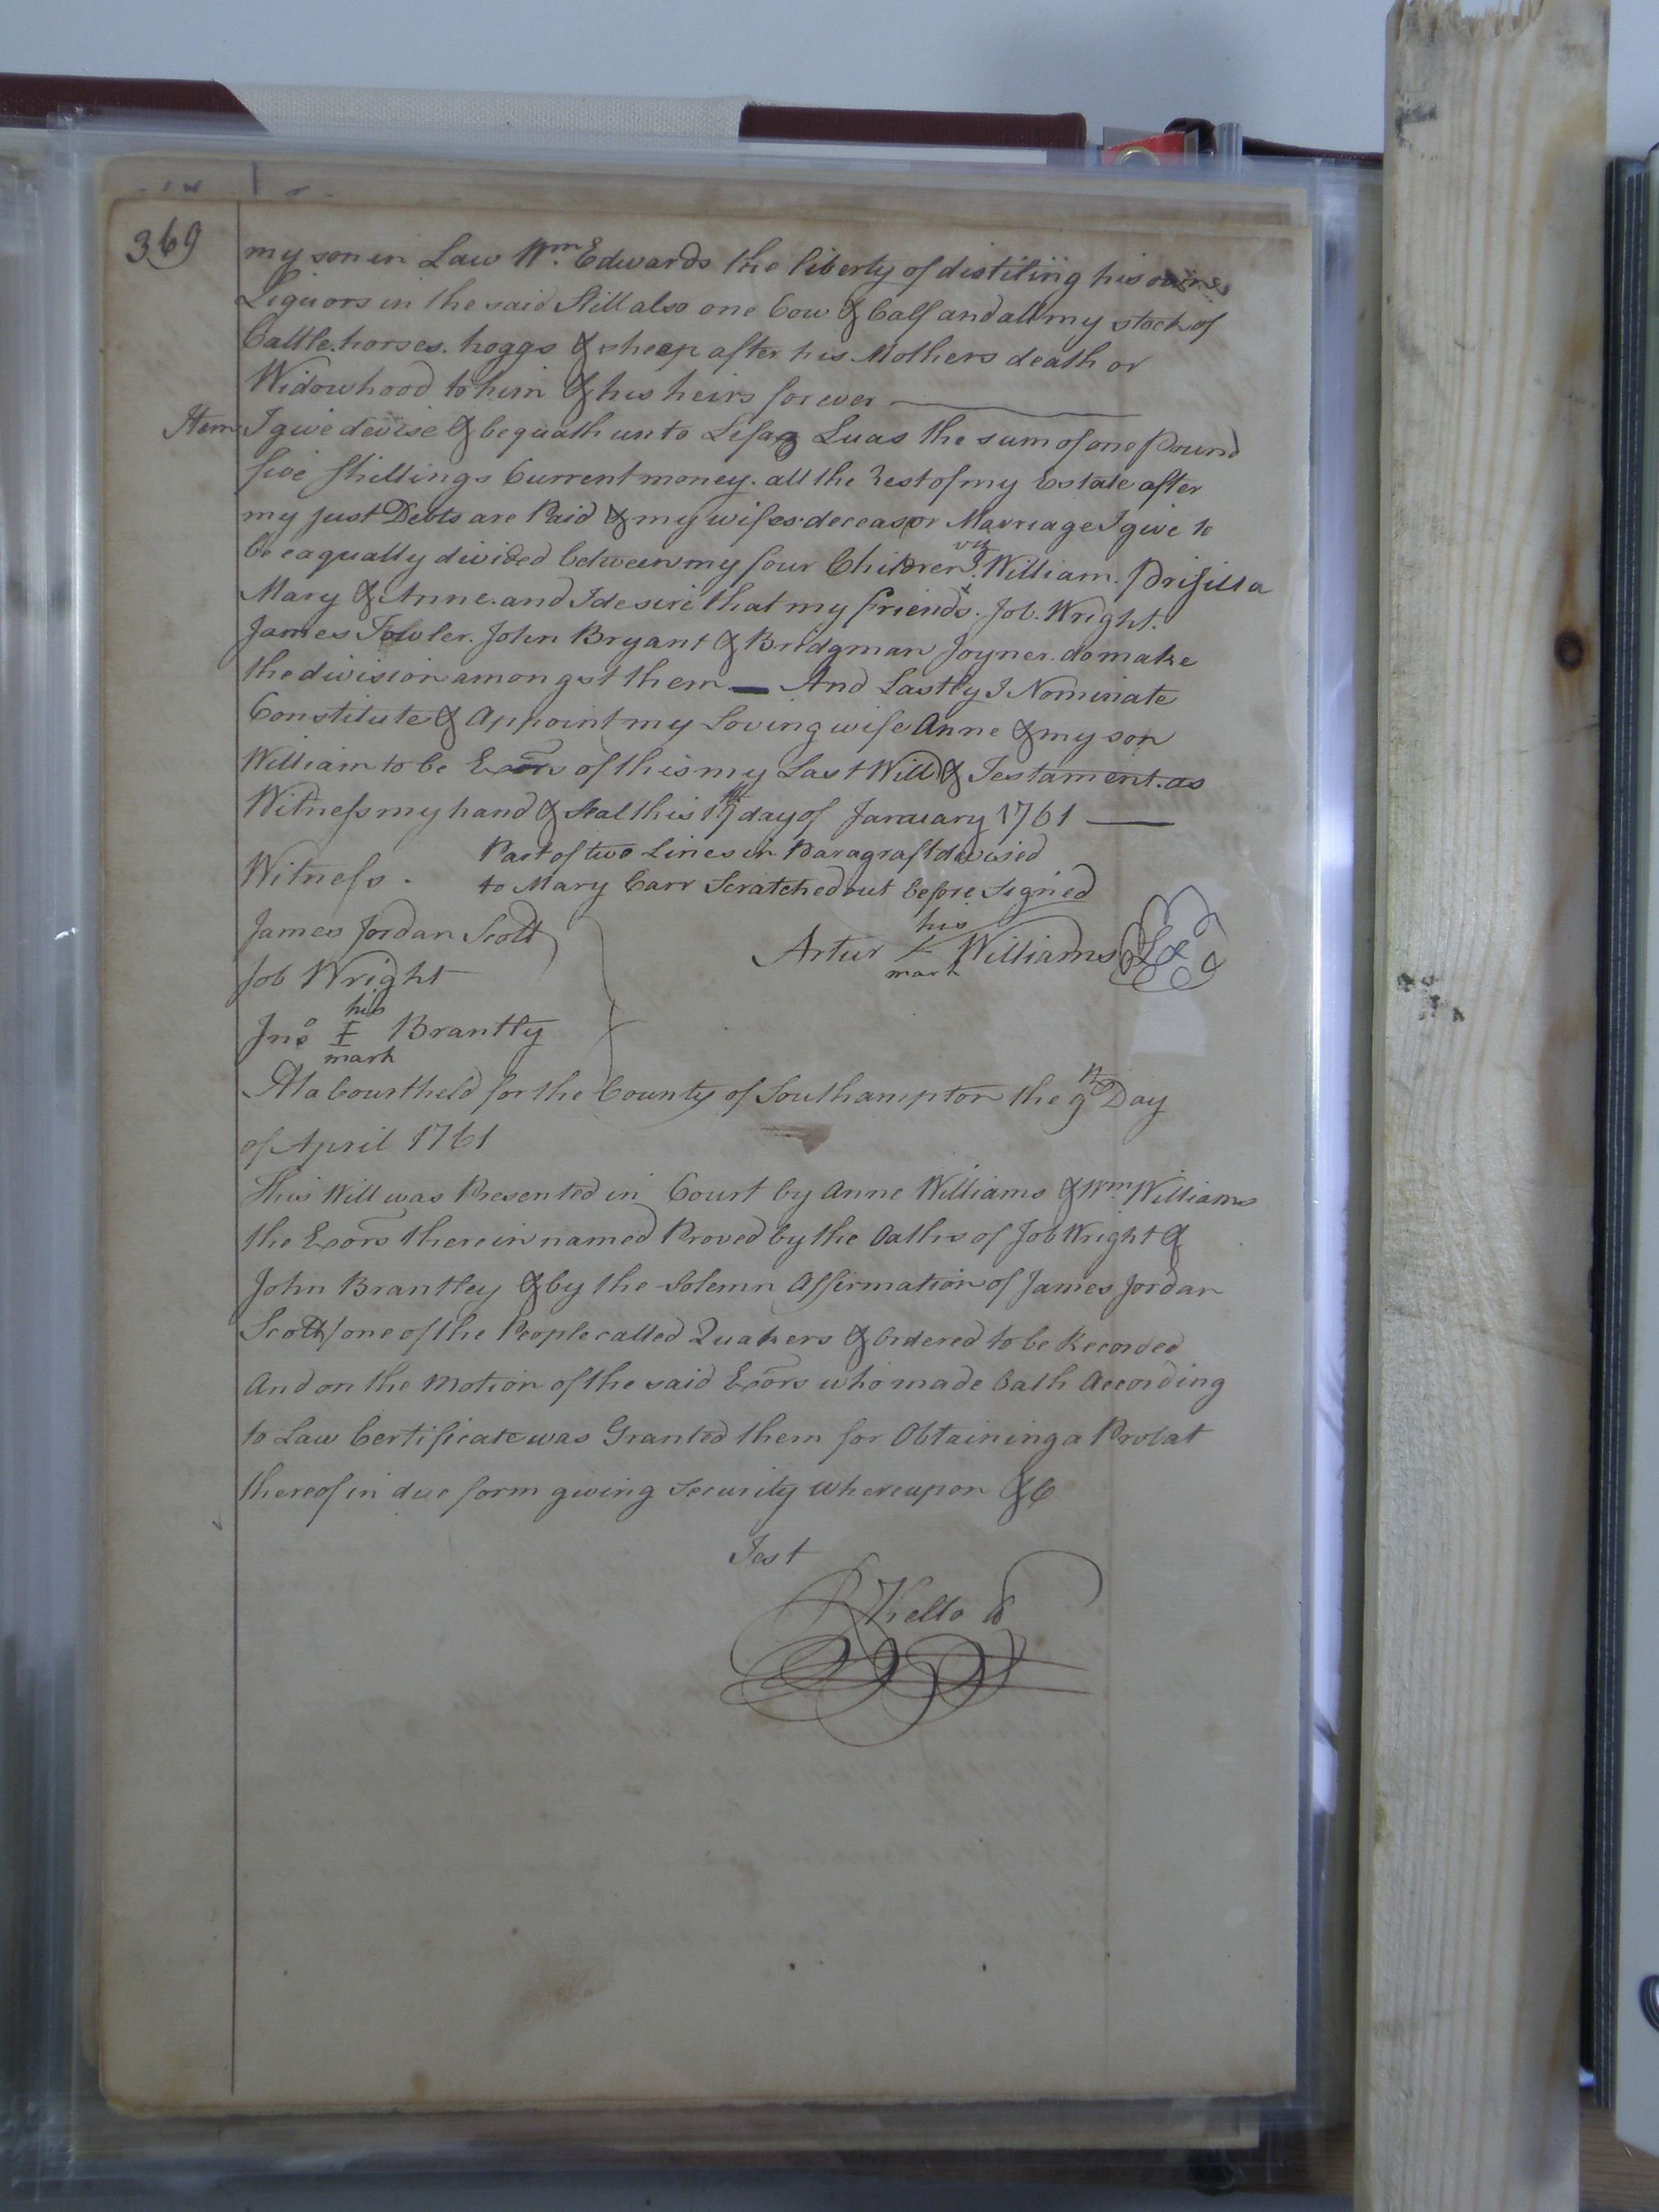 369
my son in Law Wm. Edwards the liberty of distiling his own
Liquors in the said Still also one Cow & Calf and all my stock of
Cattle. horses. hoggs & sheep after his Mothers death or
Widowhood to him & his heirs for ever
Item I give devise & bequath unto Luas the sum of one Pound
five Shillings Current money. all the Rest of my Estate after
my just Debts are Paid & my wifes deceas or Marriage I give to
be eaqually divided between my four Children viz. William. Prisilla
Mary & Anne. and I desire that my friends. Job. Wright.
James Fowler. John Bryant & Bridgman Joyner. do make
the division amongst them — And Lastly I Nominate
Constitute & Appoint my Loving wife Anne & my son
William to be Exors of this my Last Will & Testament. as
Witness my hand & Seal this day of January 1761
Part of two Lines in Paragraft devised
Witness. to Mary Carr Scratched out before Signed
James Jordan Scott
his
Artur Williams
mark
Job Wright
his
Jno I Brantly
mark
At a Court held for the County of Southampton the 9th Day
of April 1761
This Will was Presented in Court by Anne Williams & Wm. Williams
the Exors therein named Proved by the Oaths of Job Wright &
John Brantley & by the Solemn Affirmation of James Jordan
Scott/one of the People called Quakers & Ordered to be Recorded
And on the Motion of the said Exors who made Oath According
to Law Certificate was Granted them for Obtaining a Probat
thereof in due form giving Security Whereupon &C
Test
R Kello